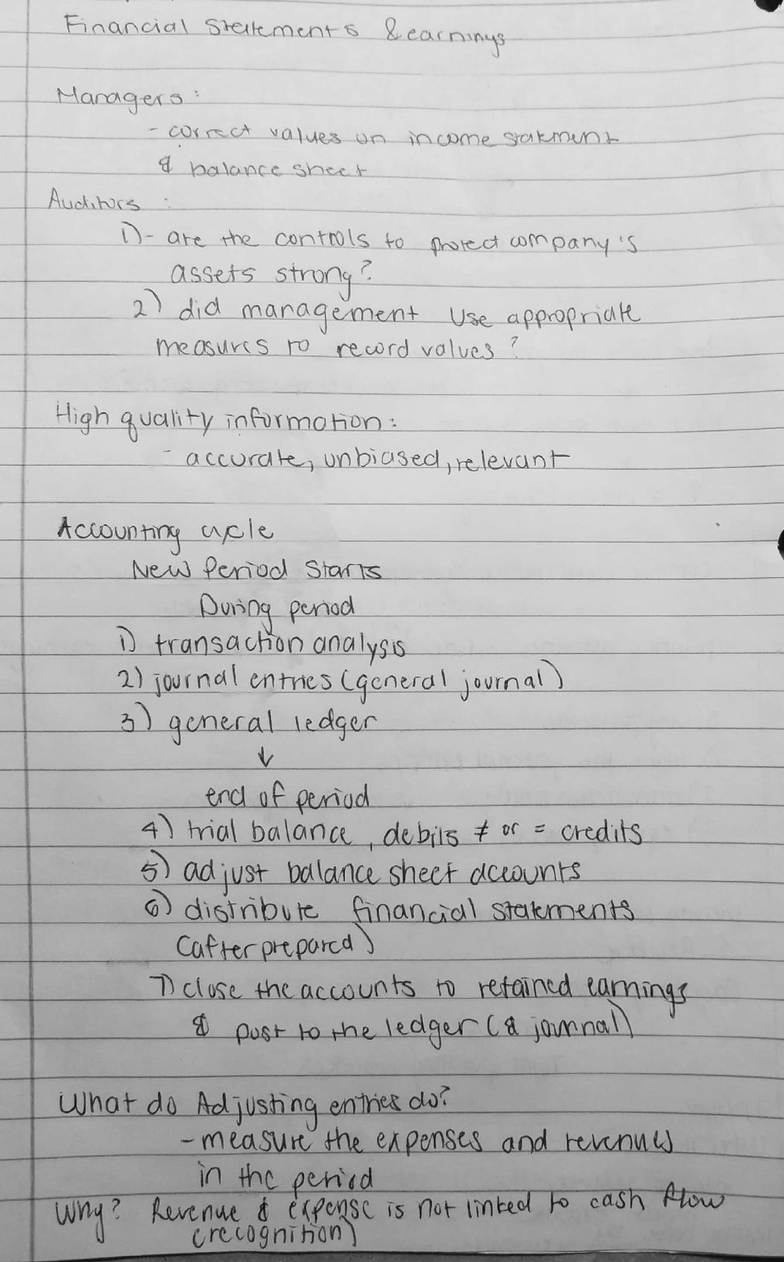 Financial Statements & earnings
Managers:
- correct values on income statement
& balance sheet
Auditors :
1) - are the controls to protect company's
assets strong?
2) did management use appropriate
measures to record values?
High quality information:
- accurate, unbiased, relevant
Accounting cycle
New Period Starts
During period
1) transaction analysis
2) journal entries (general journal)
3) general ledger
↓
end of period
4) trial balance, debits ≠ or = credits
5) adjust balance sheet accounts
6) distribute financial statements
(after prepared)
7) close the accounts to retained earnings
& post to the ledger (& journal)
What do Adjusting entries do?
- measure the expenses and revenues
in the period
Why? Revenue & expense is not linked to cash flow
(recognition)